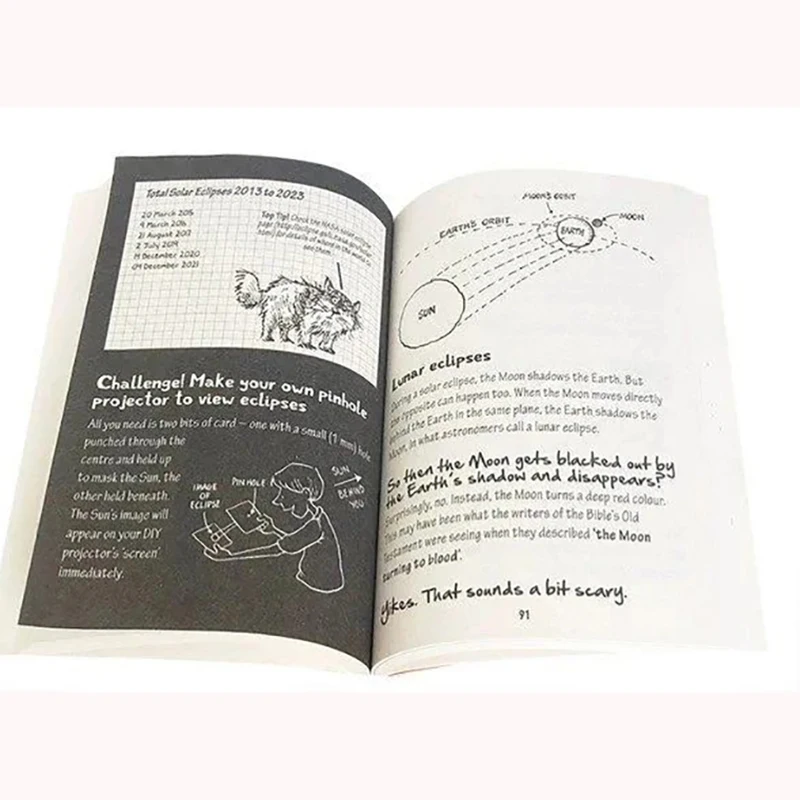 Total Solar Eclipses 2013 to 2023
20 March 2015
9 March 2016
21 August 2017
2 July 2019
14 December 2020
04 December 2021
Top Tip! Check the NASA solar eclipse
page (http://eclipse.gsfc.nasa.gov/solar.
html) for details of where in the world to
see them.
Challenge! Make your own pinhole
projector to view eclipses
All you need is two bits of card – one with a small (1 mm) hole
punched through the
centre and held up
to mask the Sun, the
other held beneath.
The Sun's image will
appear on your DIY
projector's 'screen'
immediately.
IMAGE
OF
ECLIPSE
PIN HOLE
SUN
BEHIND
YOU
MOON'S ORBIT
EARTH'S ORBIT
MOON
EARTH
SUN
Lunar eclipses
During a solar eclipse, the Moon shadows the Earth. But
the opposite can happen too. When the Moon moves directly
behind the Earth in the same plane, the Earth shadows the
Moon, in what astronomers call a lunar eclipse.
So then the Moon gets blacked out by
the Earth's shadow and disappears?
Surprisingly, no. Instead, the Moon turns a deep red colour.
This may have been what the writers of the Bible's Old
Testament were seeing when they described 'the Moon
turning to blood'.
Yikes. That sounds a bit scary.
91